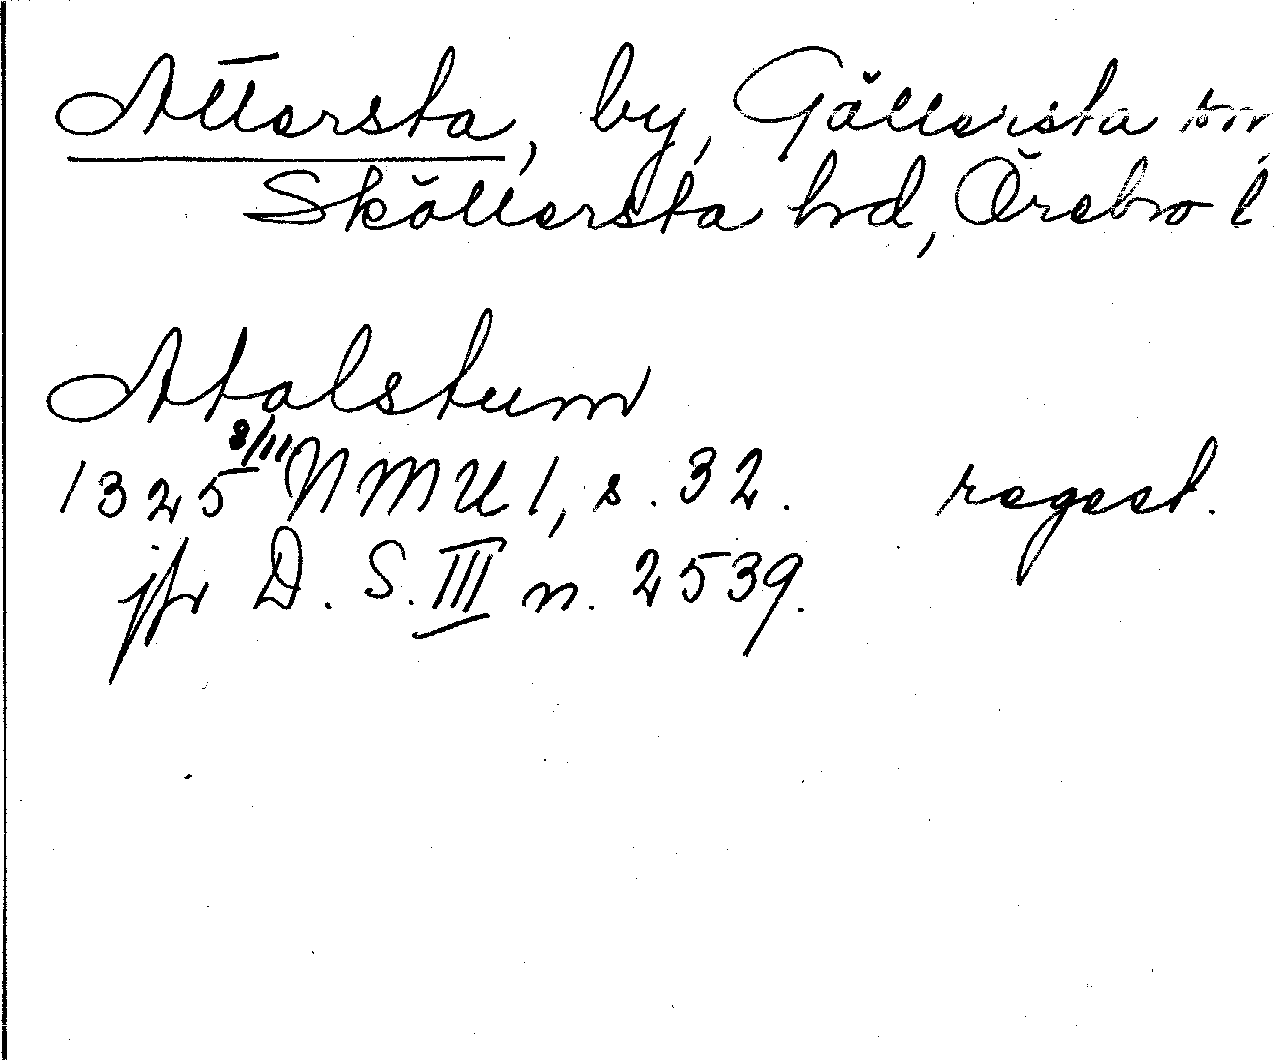 Attersta, by, Gällersta sn,
Sköllersta hrd, Örebro l
Atalstum
1325 8/11 NMU 1, s. 32. regest.
jfr D. S. III n. 2539.